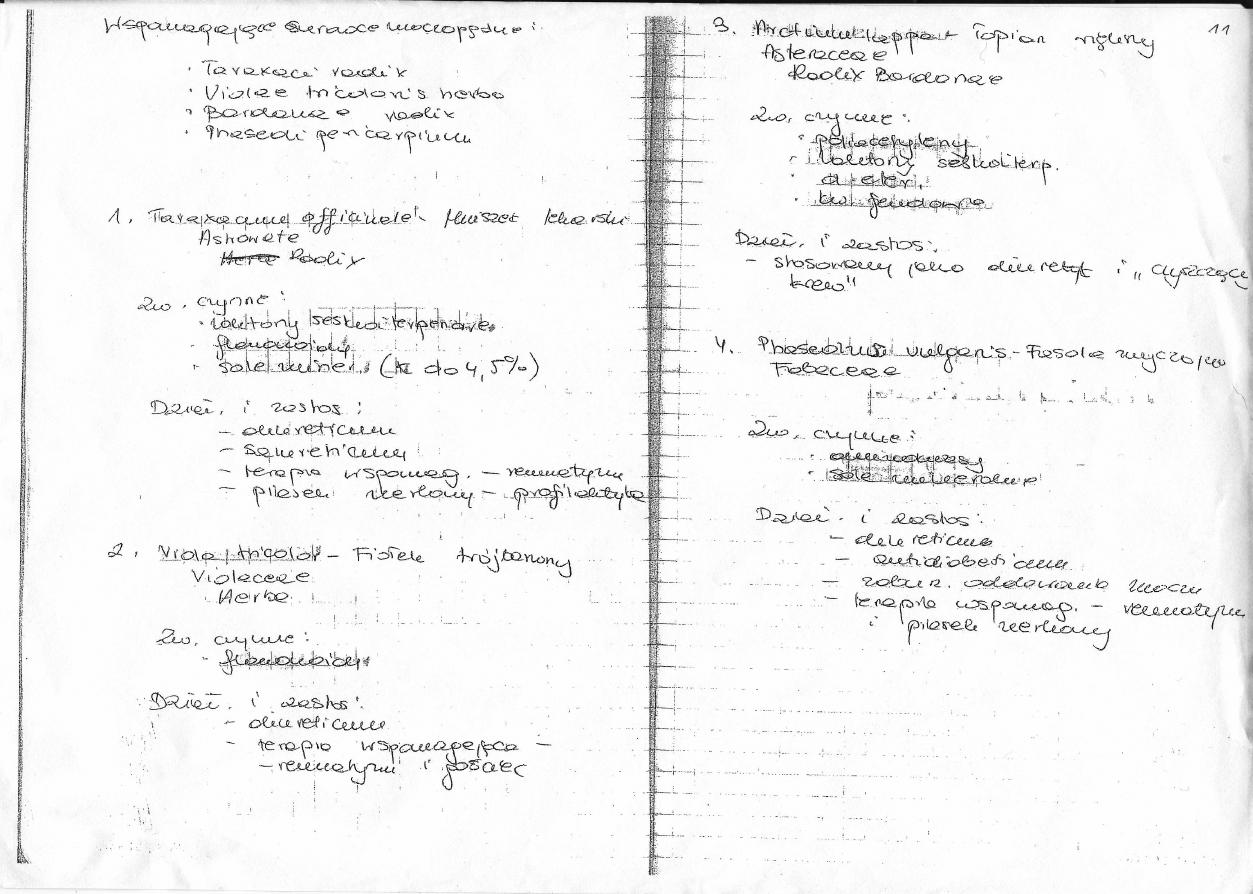 Wspomagające surowce moczopędne:
· Taraxaci radix
· Violae tricoloris herba
· Bardanae radix
· Phaseoli pericarpium
1. Taraxacum officinale - Mniszek lekarski
Asteraceae
Radix
Zw. czynne:
· laktony seskwiterpenowe
· flawonoidy
· sole miner. (K do 4,5%)
Dział. i zastos:
- diureticum
- terapia wspomag. - reumatyzm
- piasek nerkowy - profilaktyka
2. Viola tricolor - Fiołek trójbarwny
Violaceae
Herba
Zw. czynne:
· flawonoidy
Dział. i zastos:
- diureticum
- terapia wspomagająca -
- reumatyzm i gościec
11
3. Arctium lappa - Łopian większy
Asteraceae
Radix Bardanae
Zw. czynne:
· poliacetyleny
· laktony seskwiterp.
· ol. eter.
Dział. i zastos:
- stosowany jako diuretyk i „czyszczący
krew"
4. Phaseolus vulgaris - Fasola zwyczajna
Fabaceae
Zw. czynne:
· aminokwasy
· sole mineralne
Dział. i zastos:
- diureticum
- antidiabeticum
- zaburz. oddawania moczu
- terapia wspomag. - reumatyzm
i piasek nerkowy